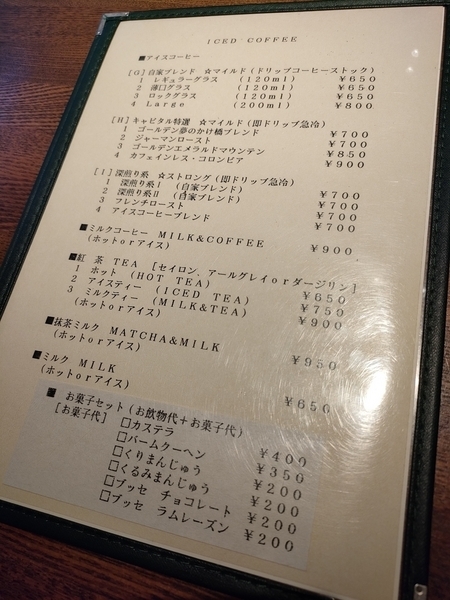 ICED COFFEE
■アイスコーヒー
[G] 自家ブレンド ☆マイルド (ドリップコーヒーストック)
1 レギュラーグラス (120ml) ￥650
2 薄口グラス (120ml) ￥650
3 ロックグラス (120ml) ￥650
4 Large (200ml) ￥800
[H] キャピタル特選 ☆マイルド (即ドリップ急冷)
1 ゴールデン夢のかけ橋ブレンド ￥700
2 ジャーマンロースト ￥700
3 ゴールデンエメラルドマウンテン ￥850
4 カフェインレス・コロンビア ￥900
[I] 深煎り系 ☆ストロング (即ドリップ急冷)
1 深煎り系Ⅰ (自家ブレンド) ￥700
2 深煎り系Ⅱ (自家ブレンド) ￥700
3 フレンチロースト ￥700
4 アイスコーヒーブレンド ￥700
■ミルクコーヒー MILK&COFFEE ￥900
(ホットorアイス)
■紅 茶 TEA [セイロン、アールグレイorダージリン]
1 ホット (HOT TEA) ￥650
2 アイスティー (ICED TEA) ￥750
3 ミルクティー (MILK&TEA) ￥900
(ホットorアイス)
■抹茶ミルク MATCHA&MILK ￥950
(ホットorアイス)
■ミルク MILK ￥650
(ホットorアイス)
■ お菓子セット (お飲物代＋お菓子代)
[お菓子代] □カステラ ￥400
□バームクーヘン ￥350
□くりまんじゅう ￥200
□くるみまんじゅう ￥200
□ブッセ チョコレート ￥200
□ブッセ ラムレーズン ￥200